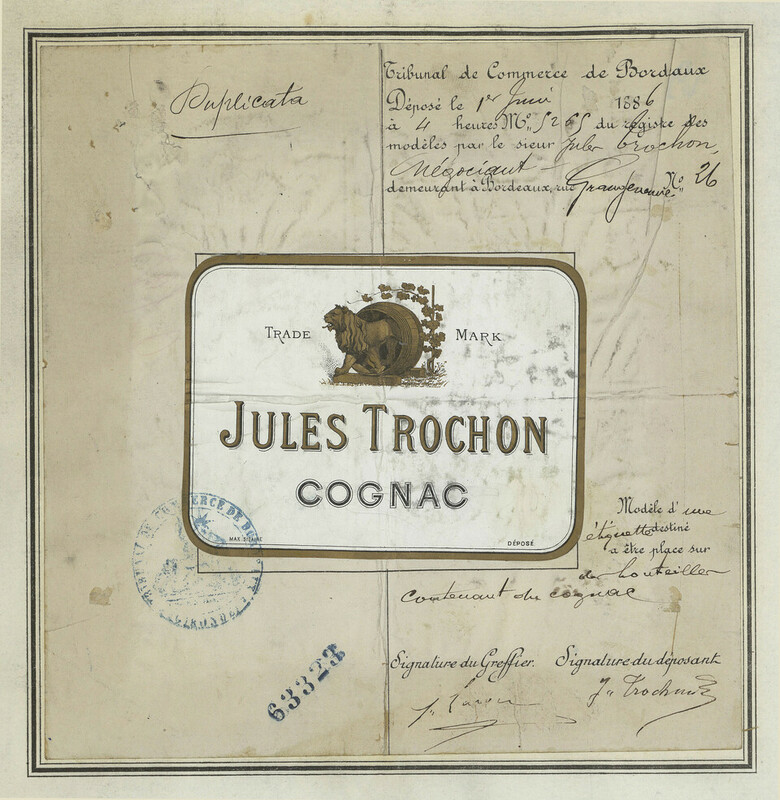 Duplicata
Tribunal de Commerce de Bordaux
Déposé le 1er Juin 1886
à 4 heures Mo. 5265 du registre des
modèles par le sieur Jules Trochon,
Négociant
demeurant à Bordeaux, rue Grangeneuve No. 26
TRADE MARK
JULES TROCHON
COGNAC
DÉPOSÉ
Modèle d'une
étiquette destiné
a être place sur
des bouteilles
contenant du cognac
TRIBUNAL DE COMMERCE DE BORDEAUX
(GIRONDE)
63323
Signature du Greffier. Signature du déposant
J. Trochon